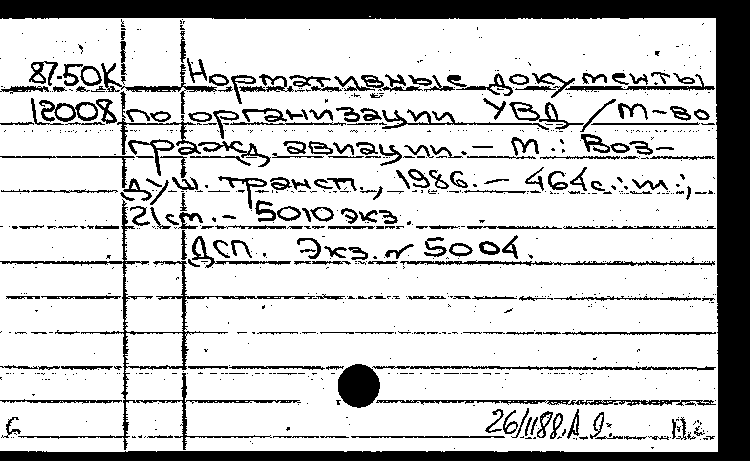 87-50К Нормативные документы
12008 по организации УВД / М-во
гражд. авиации. – М.: Воз-
душ. трансп., 1986. – 464с.: ил.;
21см. – 5010экз.
ДСП. Экз. № 5004.
6 26/1188. М.2